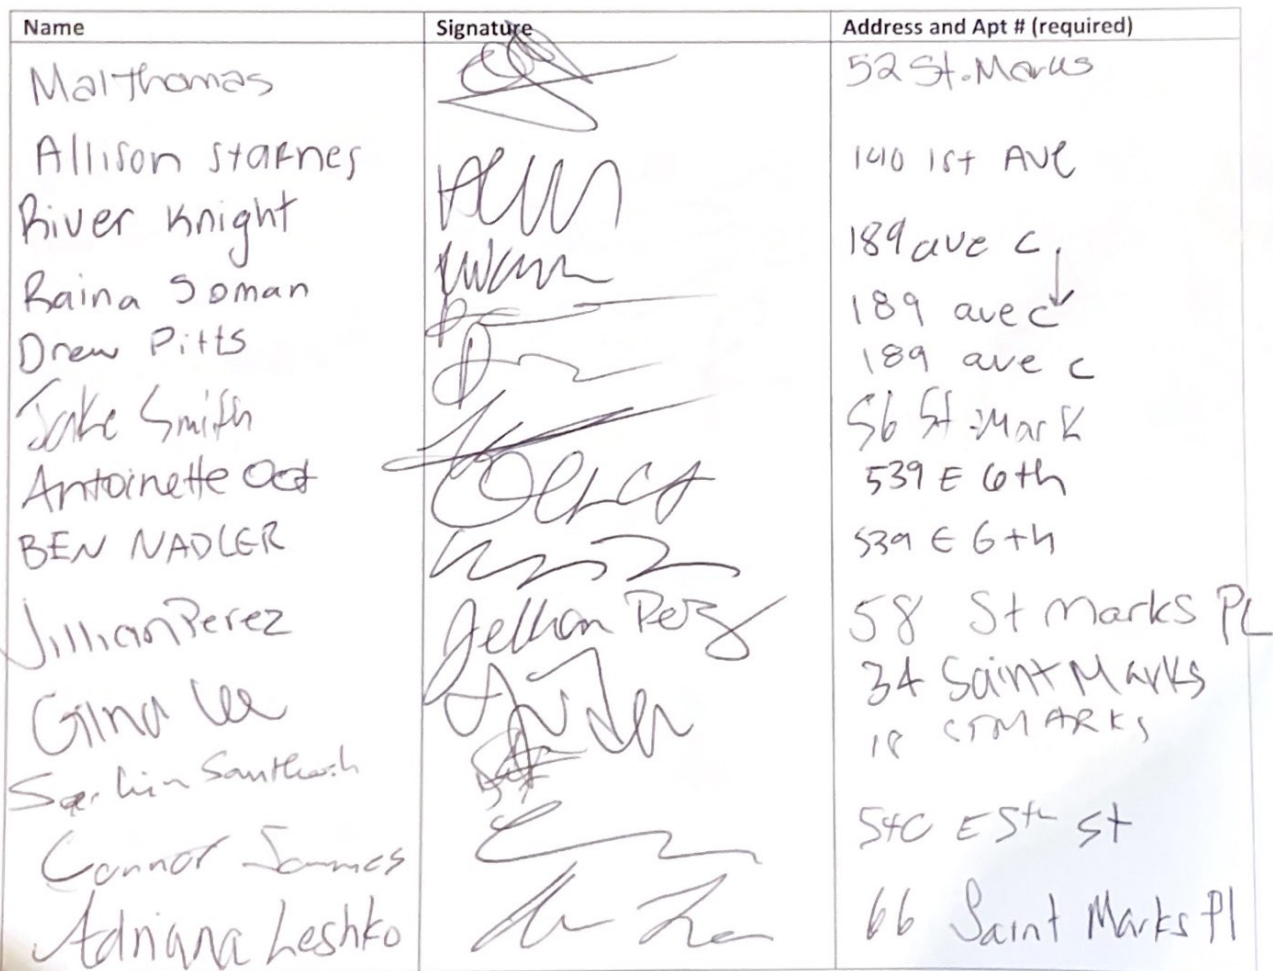 Name Signature Address and Apt # (required)
Mal Thomas 52 St. Marks
Allison Starnes 140 1st Ave
River Knight 189 ave c
Raina Soman 189 ave c
Drew Pitts 189 ave c
Jake Smith 56 St. Mark
Antoinette Oct 539 E 6th
BEN NADLER 539 E 6th
Jillian Perez Jillian Perez 58 St Marks PL
Gina Lee 34 Saint Marks
Santhosh 18 ST MARKS
Connor E 5th St
Adriana Leshko 66 Saint Marks Pl